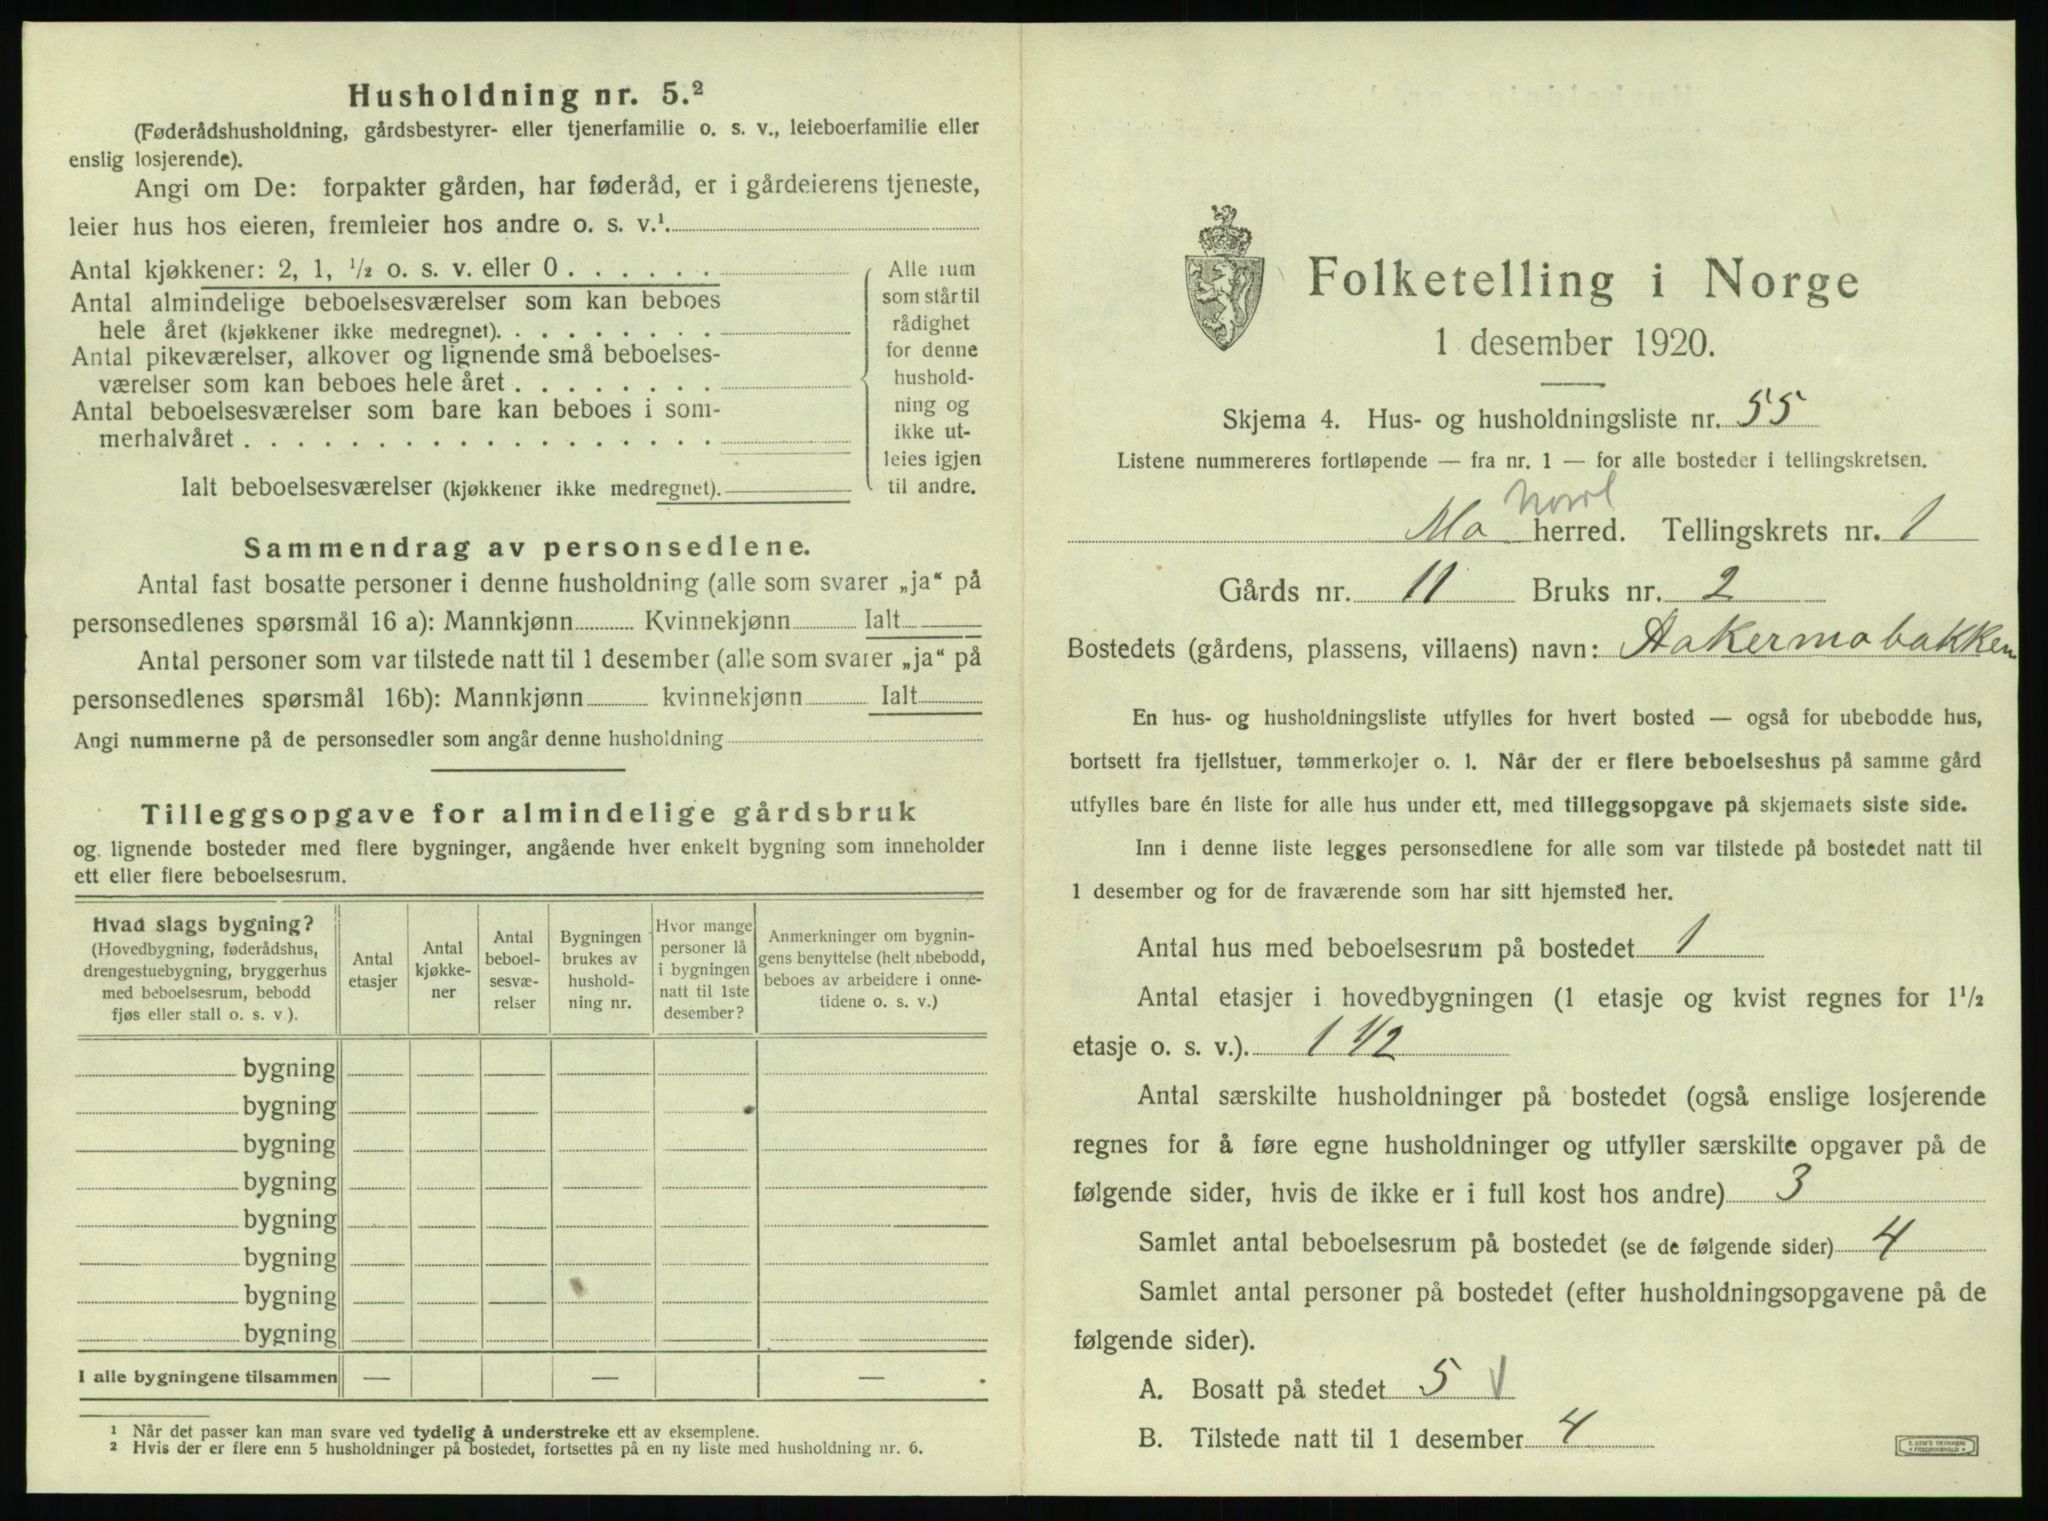 Husholdning nr. 5.²
(Føderådshusholdning, gårdsbestyrer- eller tjenerfamilie o. s. v., leieboerfamilie eller
enslig losjerende).
Angi om De: forpakter gården, har føderåd, er i gårdeierens tjeneste,
leier hus hos eieren, fremleier hos andre o. s. v.¹
Antal kjøkkener: 2, 1, ½ o. s. v. eller 0 . . . . . .
Antal almindelige beboelsesværelser som kan beboes
hele året (kjøkkener ikke medregnet). . . . . . . . .
Antal pikeværelser, alkover og lignende små beboelses-
værelser som kan beboes hele året . . . . . . . .
Antal beboelsesværelser som bare kan beboes i som-
merhalvåret . . . . . . . . . . . . . . . . . .
Ialt beboelsesværelser (kjøkkener ikke medregnet).
Alle rum
som står til
rådighet
for denne
hushold-
ning og
ikke ut-
leies igjen
til andre.
Sammendrag av personsedlene.
Antal fast bosatte personer i denne husholdning (alle som svarer „ja“ på
personsedlenes spørsmål 16 a): Mannkjønn Kvinnekjønn Ialt
Antal personer som var tilstede natt til 1 desember (alle som svarer „ja“ på
personsedlenes spørsmål 16b): Mannkjønn kvinnekjønn Ialt
Angi nummerne på de personsedler som angår denne husholdning
Tilleggsopgave for almindelige gårdsbruk
og lignende bosteder med flere bygninger, angående hver enkelt bygning som inneholder
ett eller flere beboelsesrum.
Hvad slags bygning?
(Hovedbygning, føderådshus,
drengestuebygning, bryggerhus
med beboelsesrum, bebodd
fjøs eller stall o. s. v ).
Antal
etasjer
Antal
kjøkke-
ner
Antal
beboel-
sesvæ-
relser
Bygningen
brukes av
hushold-
ning nr.
Hvor mange
personer lå
i bygningen
natt til 1ste
desember?
Anmerkninger om bygnin-
gens benyttelse (helt ubebodd,
beboes av arbeidere i onne-
tidene o. s. v.)
bygning
bygning
bygning
bygning
bygning
bygning
bygning
bygning
I alle bygningene tilsammen — — —
¹ Når det passer kan man svare ved tydelig å understreke ett av eksemplene.
² Hvis der er flere enn 5 husholdninger på bostedet, fortsettes på en ny liste med husholdning nr. 6.
Folketelling i Norge
1 desember 1920.
Skjema 4. Hus- og husholdningsliste nr. 55
Listene nummereres fortløpende — fra nr. 1 — for alle bosteder i tellingskretsen.
Nord
Mo herred. Tellingskrets nr. 1
Gårds nr. 11 Bruks nr. 2
Bostedets (gårdens, plassens, villaens) navn: Aakermobakken
En hus- og husholdningsliste utfylles for hvert bosted — også for ubebodde hus,
bortsett fra fjellstuer, tømmerkojer o. l. Når der er flere beboelseshus på samme gård
utfylles bare én liste for alle hus under ett, med tilleggsopgave på skjemaets siste side.
Inn i denne liste legges personsedlene for alle som var tilstede på bostedet natt til
1 desember og for de fraværende som har sitt hjemsted her.
Antal hus med beboelsesrum på bostedet 1
Antal etasjer i hovedbygningen (1 etasje og kvist regnes for 1½
etasje o. s. v.). 1 1/2
Antal særskilte husholdninger på bostedet (også enslige losjerende
regnes for å føre egne husholdninger og utfyller særskilte opgaver på de
følgende sider, hvis de ikke er i full kost hos andre) 3
Samlet antal beboelsesrum på bostedet (se de følgende sider) 4
Samlet antal personer på bostedet (efter husholdningsopgavene på de
følgende sider).
A. Bosatt på stedet 5 √
B. Tilstede natt til 1 desember 4
E. SEM'S TRYKKERI
FREDRIKSHALD